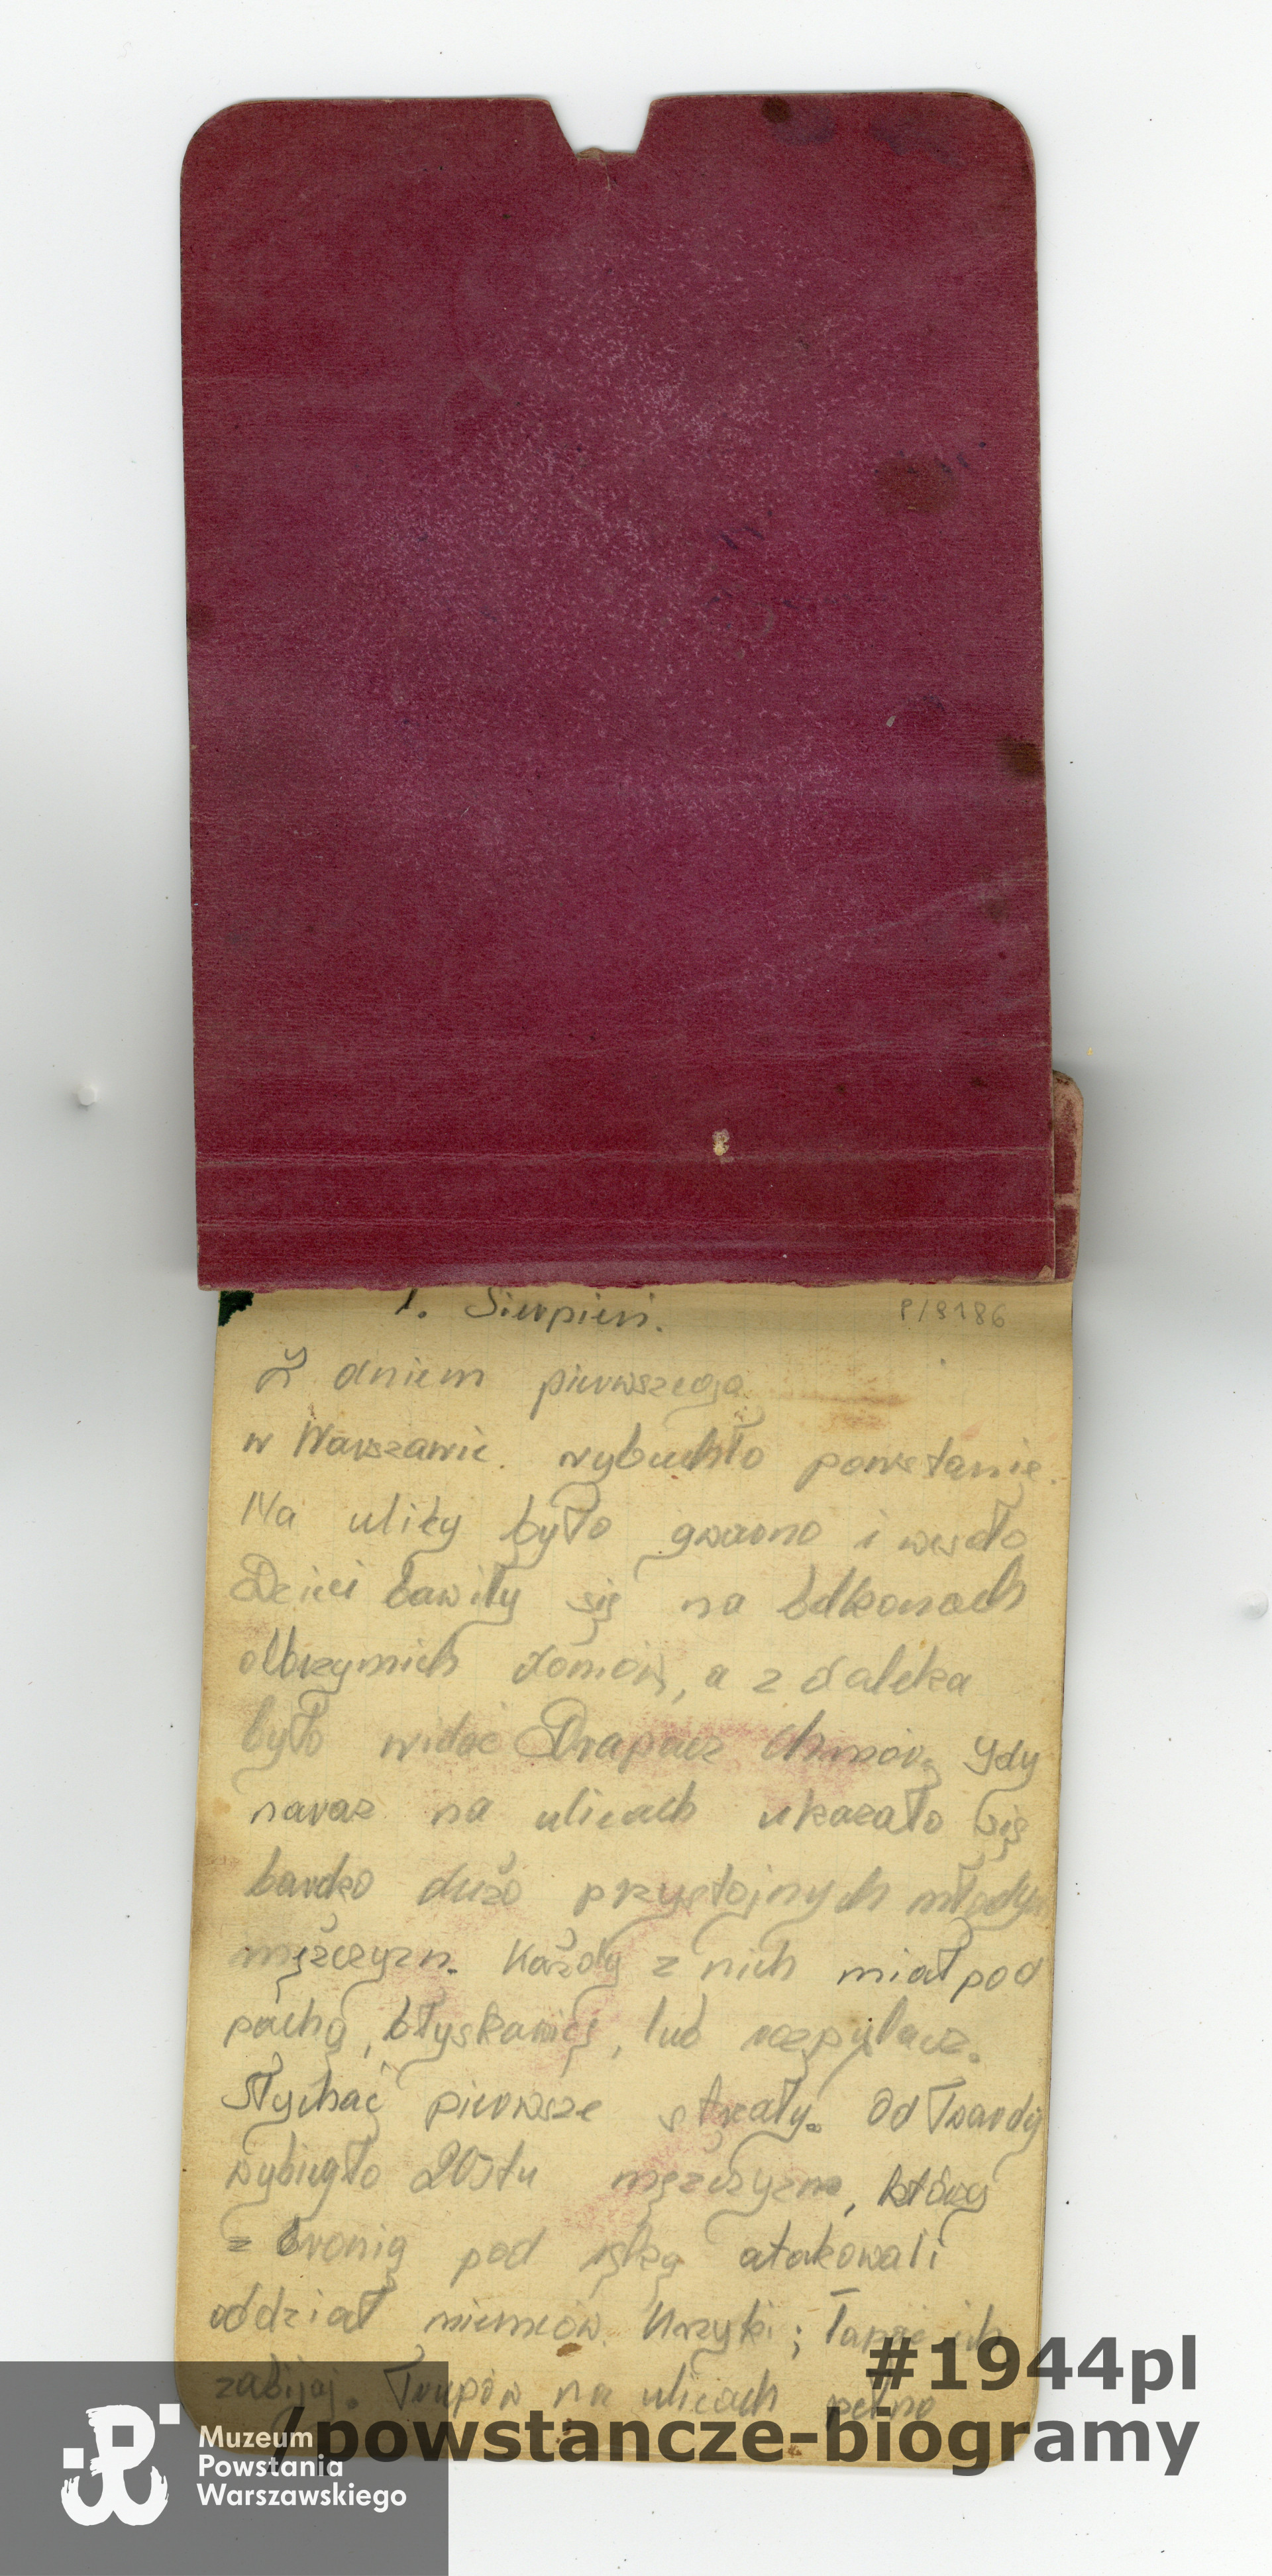 1. Sierpień.
P/8186
Z dniem pierwszego
w Warszawie. wybuchło powstanie.
Na ulicy było gwarno i wesoło
Dzieci bawiły się na balkonach
olbrzymich domów, a z daleka
było widać Drapacz chmór, gdy
naraz na ulicach ukazało się
bardzo dużo przystojnych młodych
mężczyzn. Każdy z nich miał pod
pachą, błyskawicę, lub rozpylacz.
Słychać pierwsze strzały. Od Twardy
wybiegło 20stu mężczyzn, którzy
z bronią pod ręką atakowali
oddział niemców. Krzyki; Łapać ich
zabijaj. Trupów na ulicach pełno
#1944pl
/powstancze-biogramy
Muzeum
Powstania
Warszawskiego